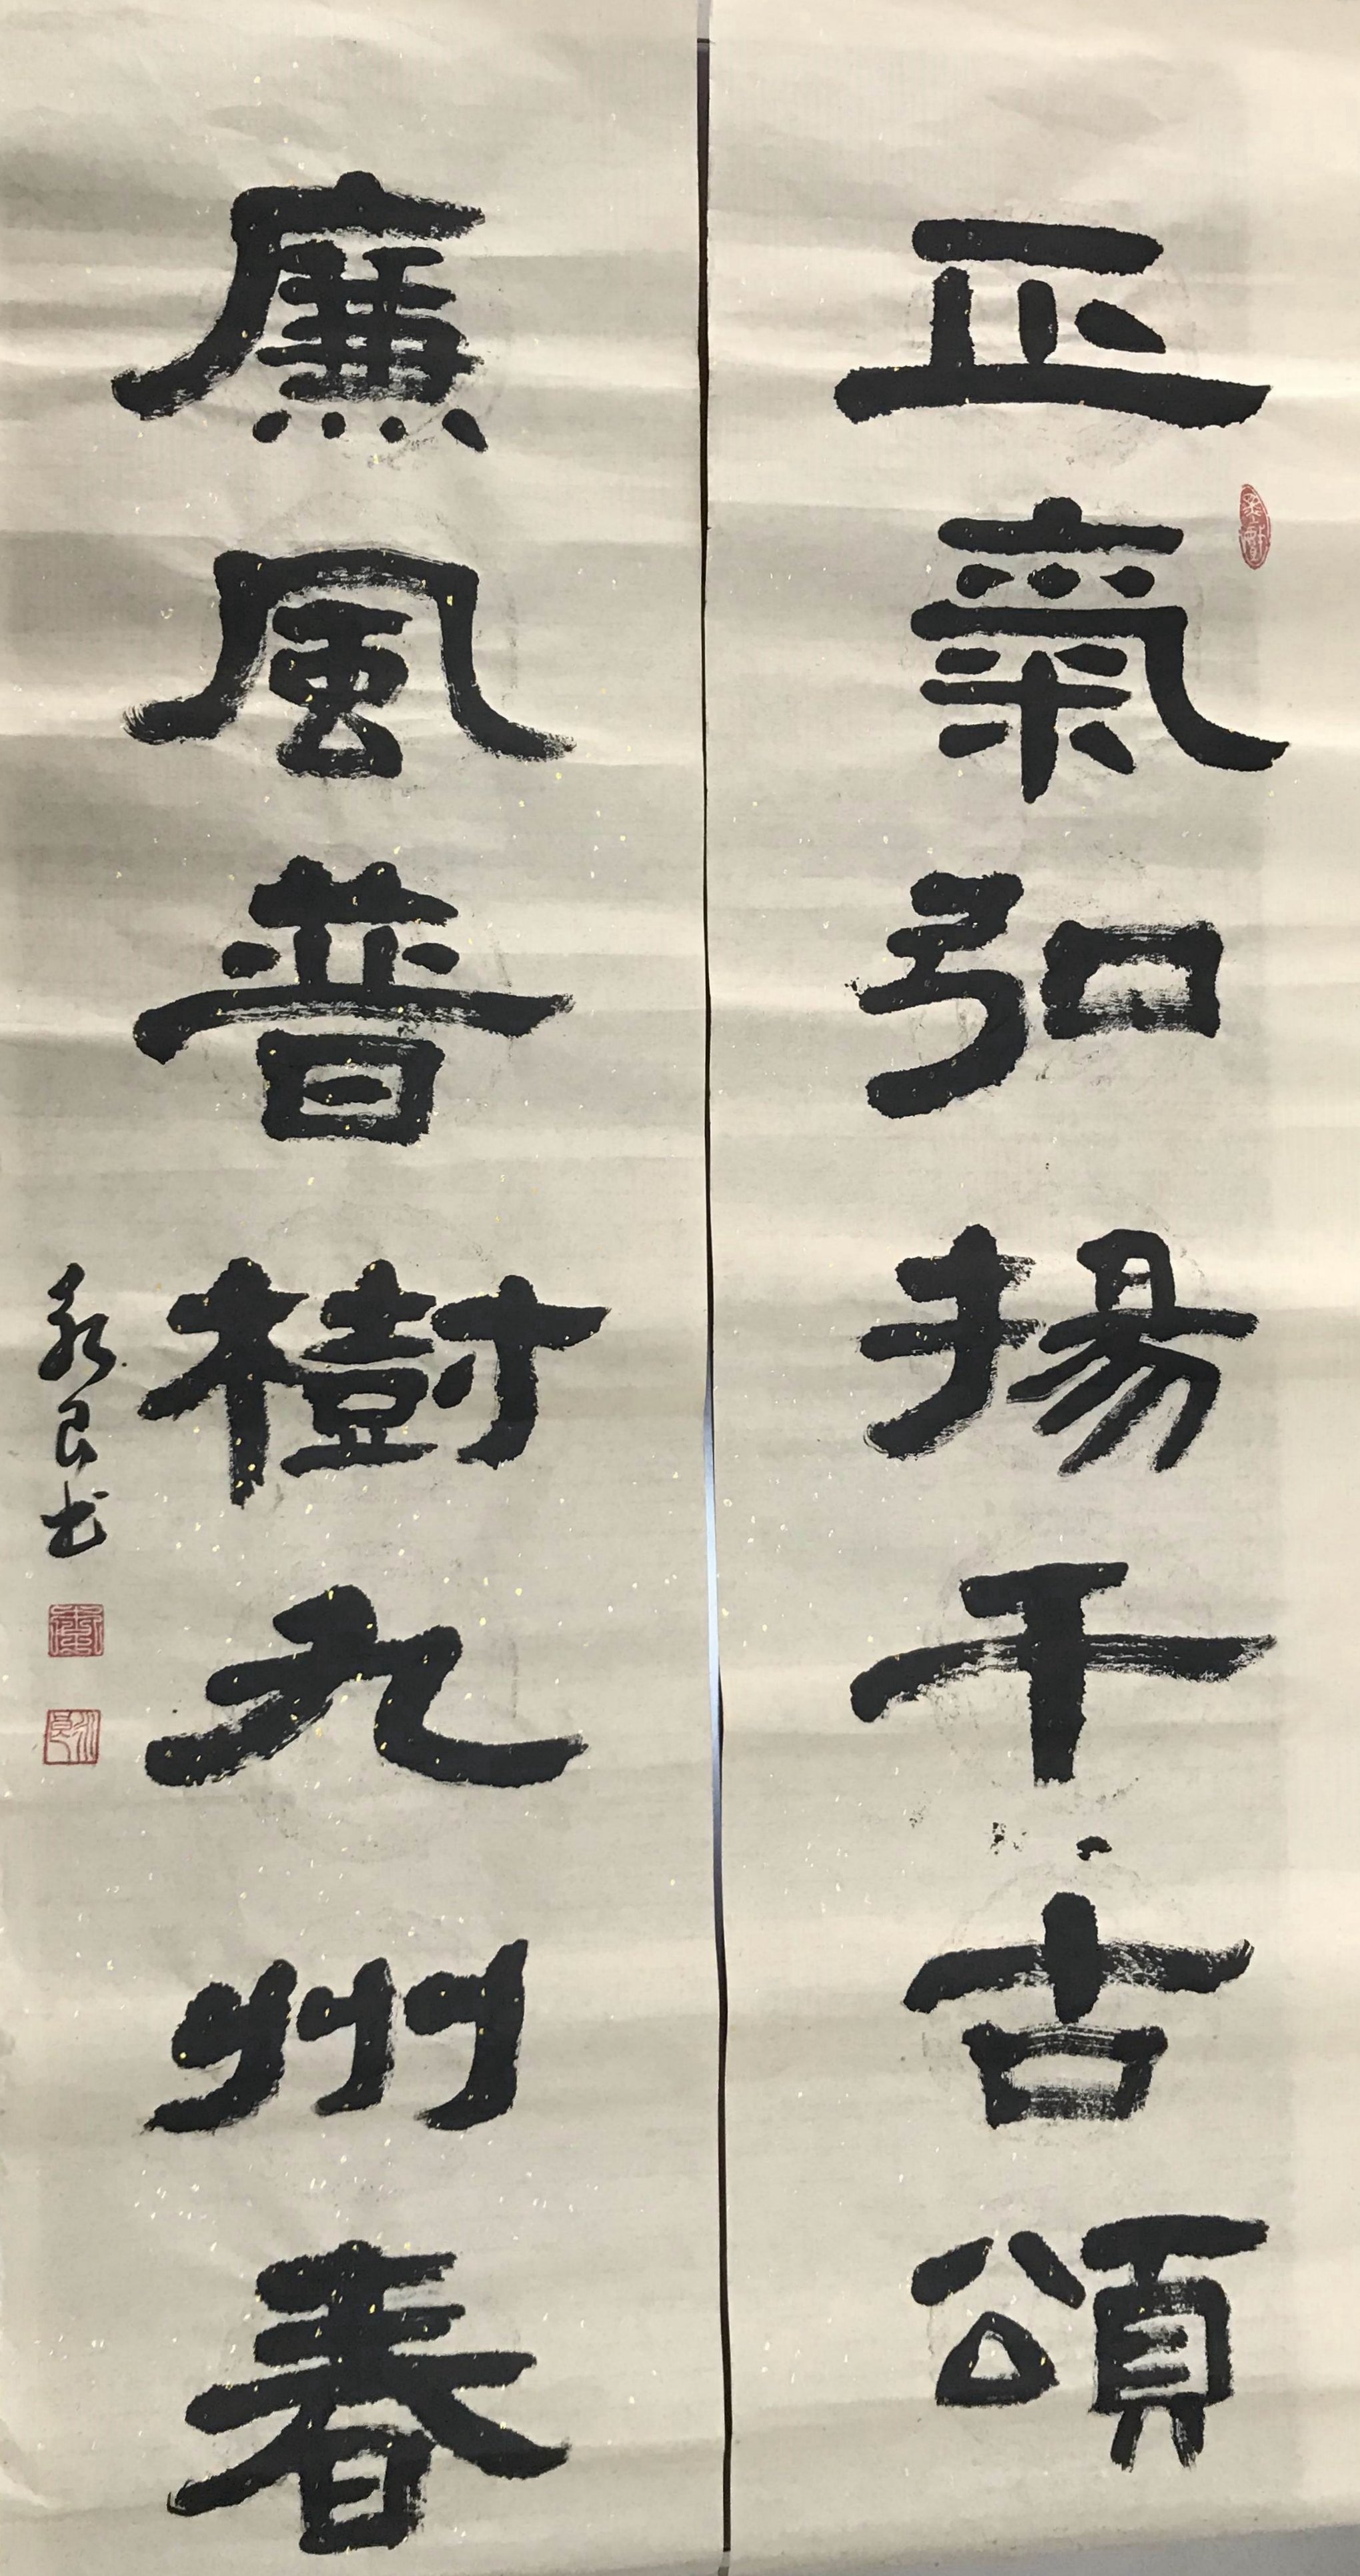 正氣弘揚千古頌
廉風普樹九州春
永良书